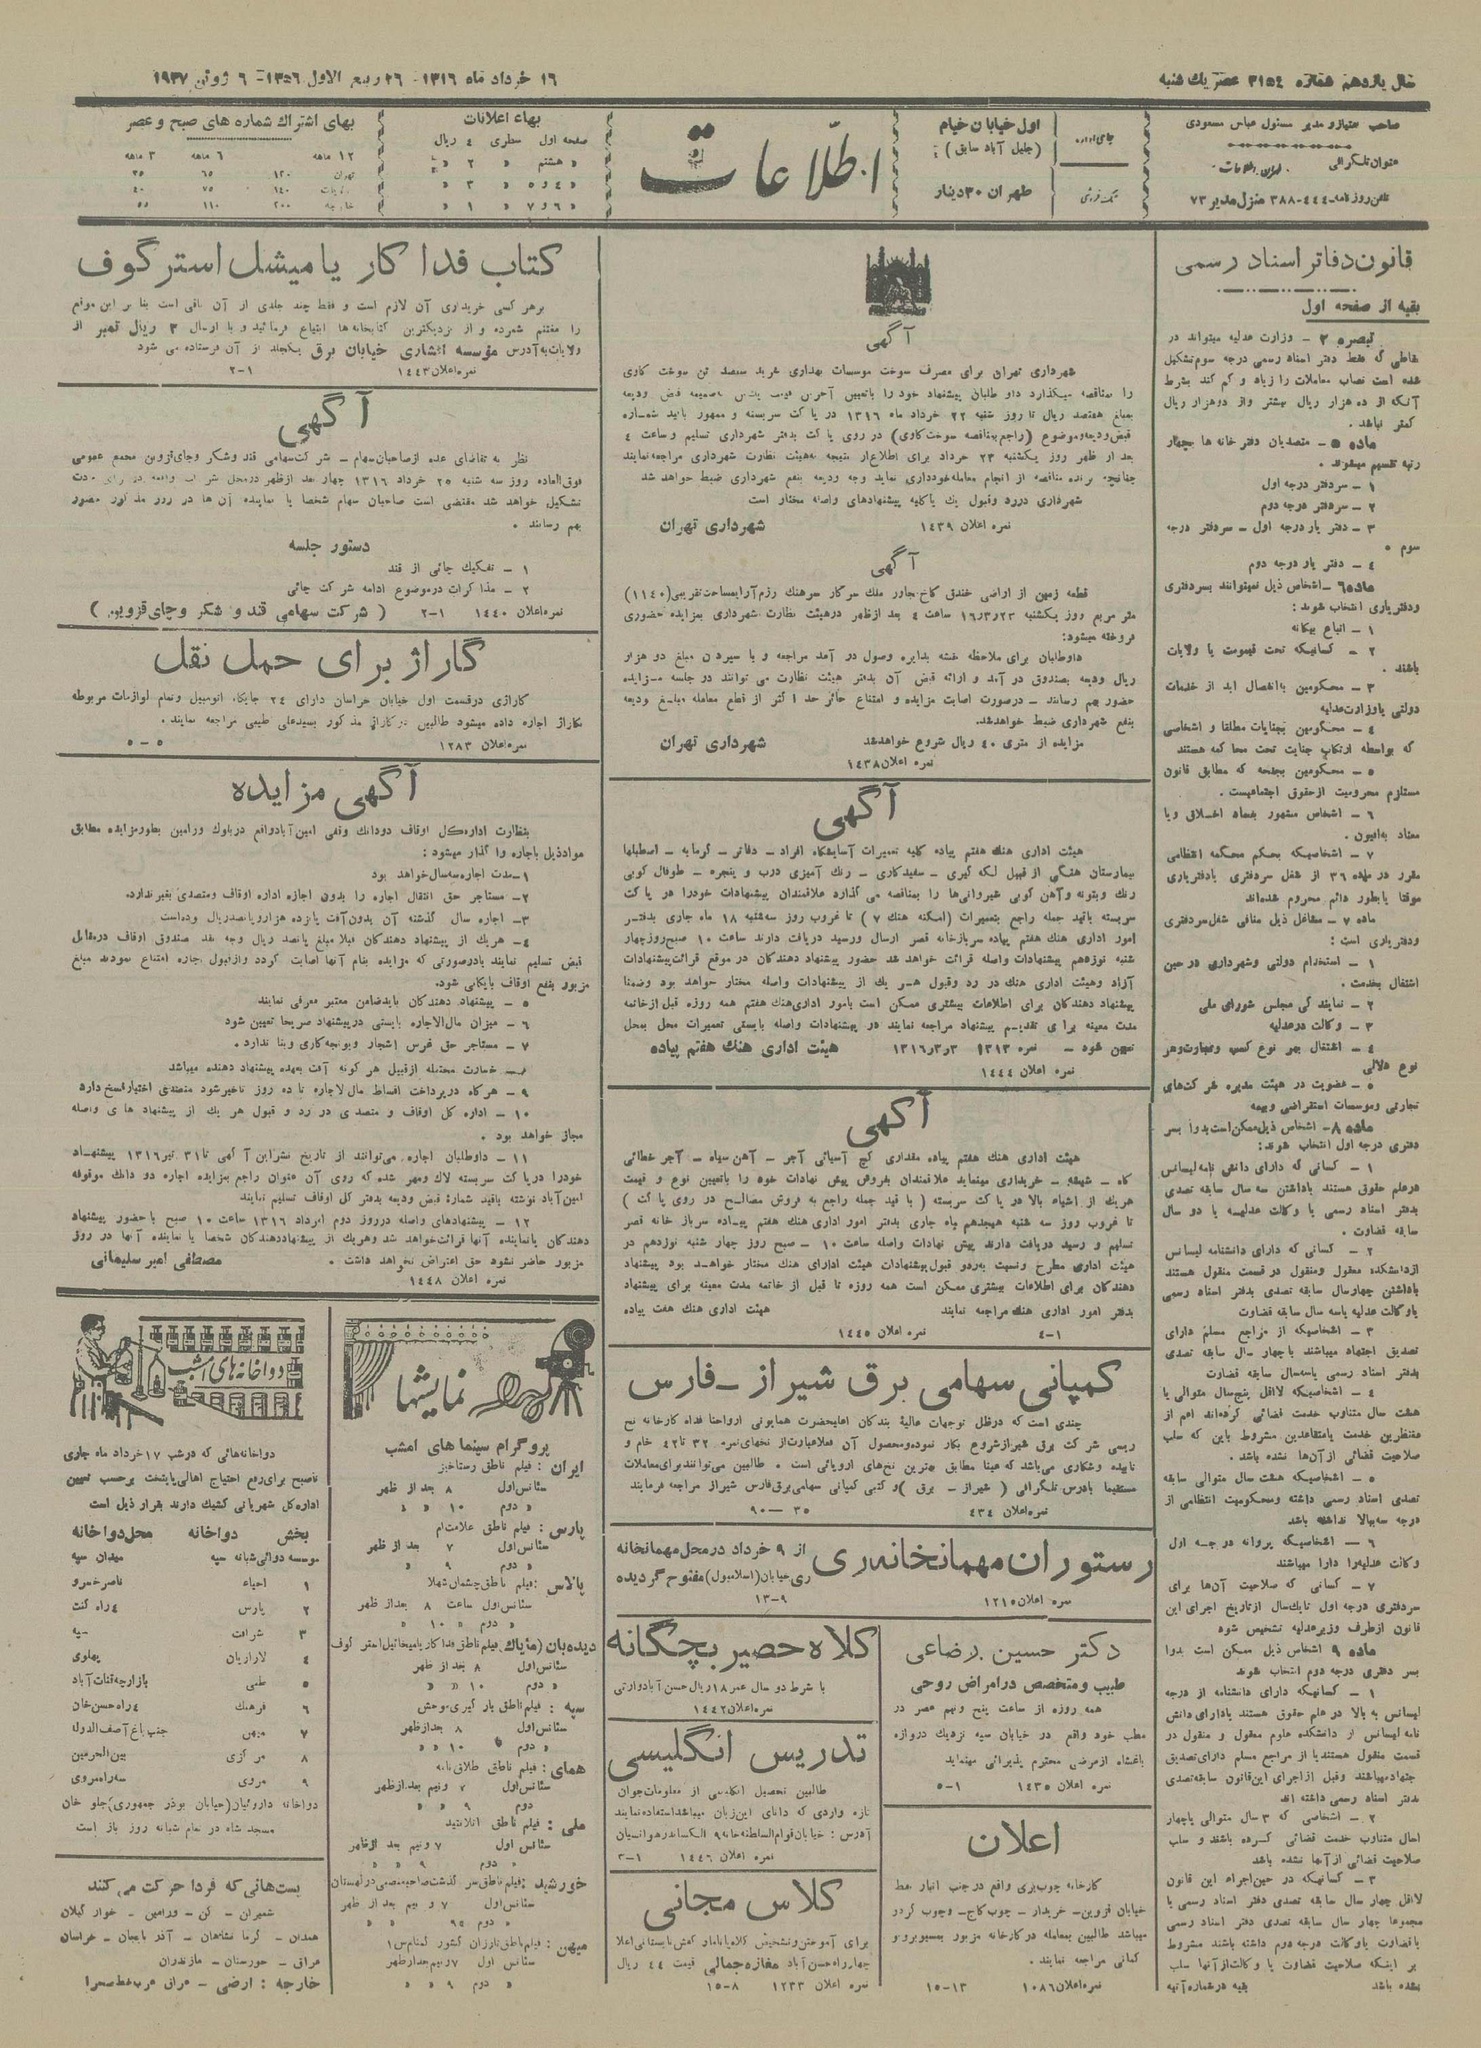 سال یازدهم شماره ۳۱۵۴ عصر یك شنبه
۱۶ خرداد ماه ۱۳۱۶ - ۲۶ ربیع الاول ۱۳۵۶ - ۶ ژوئن ۱۹۳۷
صاحب امتیاز و مدیر مسئول عباس مسعودی
عنوان تلگرافی
تلفن روزنامه ۴۴۴-۳۸۸ منزل مدیر ۷۳
جای اداره
تك فروشی
اول خیابان خیام
(جلیل آباد سابق)
طهران ۳۰ دینار
اطلاعات
بهاء اعلانات
صفحه اول سطری ٤ ریال
« هشتم « ۲ «
« ٤ و ٥ « ۳ «
« ۶ و ۷ « ۱ «
بهای اشتراك شماره های صبح و عصر
۱۲ ماهه ۶ ماهه ۳ ماهه
تهران ۱۲۰ ۶۵ ۳۵
ولایات ۱۴۰ ۷۵ ۴۰
خارجه ۲۰۰ ۱۱۰ ۵۵
قانون دفاتر اسناد رسمی
بقیه از صفحه اول
تبصره ۲ - وزارت عدلیه میتواند در
نقاطی که فقط دفتر اسناد رسمی درجه سوم تشکیل
شده است نصاب معاملات را زیاد و کم کند بشرط
آنکه از ده هزار ریال بیشتر و از دوهزار ریال
کمتر نباشد .
ماده ٥ - متصدیان دفتر خانه ها بچهار
رتبه تقسیم میشوند .
۱ - سردفتر درجه اول
۲ - سردفتر درجه دوم
۳ - دفتر یار درجه اول - سردفتر درجه
سوم .
٤ - دفتر یار درجه دوم
ماده ۶ - اشخاص ذیل نمیتوانند بسردفتری
و دفتریاری انتخاب شوند :
۱ - اتباع بیگانه
۲ - کسانیکه تحت قیمومت یا ولایت
باشند .
۳ - محکومین بانفصال ابد از خدمات
دولتی یا وزارت عدلیه
٤ - محکومین بجنایات مطلقا و اشخاصی
که بواسطه ارتکاب جنایت تحت محاکمه هستند
٥ - محکومین بجنحه که مطابق قانون
مستلزم محرومیت از حقوق اجتماعیست .
۶ - اشخاص مشهور بفساد اخلاق و یا
معتاد به افیون .
۷ - اشخاصیکه بحکم محکمه انتظامی
مقرر در ماده ۳۶ از شغل سردفتری یا دفتریاری
موقتا یا بطور دائم محروم شده‌اند
ماده ۷ - مشاغل ذیل منافی شغل سردفتری
و دفتریاری است :
۱ - استخدام دولتی و شهرداری در حین
اشتغال بخدمت .
۲ - نمایندگی مجلس شورای ملی
۳ - وکالت در عدلیه
٤ - اشتغال بهر نوع کسب و تجارت و هر
نوع دلالی
٥ - عضویت در هیئت مدیره شرکت‌های
تجارتی و موسسات استقراضی و بیمه
ماده ۸ - اشخاص ذیل ممکن است بدوا بسر
دفتری درجه اول انتخاب شوند :
۱ - کسانی که دارای دانش نامه لیسانس
در علم حقوق هستند با داشتن سه سال سابقه تصدی
بدفتر اسناد رسمی یا وکالت عدلیه یا دو سال
سابقه قضاوت .
۲ - کسانی که دارای دانشنامه لیسانس
از دانشکده معقول و منقول در قسمت منقول هستند
با داشتن چهار سال سابقه تصدی بدفتر اسناد رسمی
یا وکالت عدلیه یا سه سال سابقه قضاوت
۳ - اشخاصیکه از مراجع مسلم دارای
تصدیق اجتهاد میباشند با چهار سال سابقه تصدی
بدفتر اسناد رسمی یا سه سال سابقه قضاوت
٤ - اشخاصیکه لااقل پنج سال متوالی یا
هشت سال متناوب خدمت قضائی کرده‌اند اعم از
منتظرین خدمت یا متقاعدین مشروط باین که سلب
صلاحیت قضائی از آن‌ها نشده باشد .
٥ - اشخاصیکه هشت سال متوالی سابقه
تصدی اسناد رسمی داشته و محکومیت انتظامی از
درجه سه ببالا نداشته باشد
۶ - اشخاصیکه پروانه درجه اول
وکالت عدلیه را دارا میباشند
۷ - کسانی که صلاحیت آن‌ها برای
سردفتری درجه اول تا یك سال از تاریخ اجرای این
قانون از طرف وزیر عدلیه تشخیص شود
ماده ۹ اشخاص ذیل ممکن است بدوا
بسر دفتری درجه دوم انتخاب شوند
۱ - کسانیکه دارای دانشنامه از درجه
لیسانس به بالا در علم حقوق هستند یا دارای دانش
نامه لیسانس از دانشکده علوم معقول و منقول در
قسمت منقول هستند یا از مراجع مسلم دارای تصدیق
اجتهاد میباشند و قبل از اجرای این قانون سابقه تصدی
دفتر اسناد رسمی داشته اند
۲ - اشخاصی که ۳ سال متوالی یا چهار
سال متناوب خدمت قضائی کرده باشند و سلب
صلاحیت قضائی از آنها نشده باشد
۳ - کسانیکه در حین اجراء این قانون
لااقل چهار سال سابقه تصدی دفتر اسناد رسمی یا
مجموعا چهار سال سابقه تصدی دفتر اسناد رسمی
با قضاوت یا وکالت درجه دوم داشته باشند مشروط
بر اینکه صلاحیت قضاوت یا وکالت از آنها سلب
نشده باشد بقیه در شماره آتیه
آگهی
شهرداری تهران برای مصرف سوخت موسسات بهداری خرید سیصد تن سوخت کاوی
را مناقصه میگذارد داو طلبان پیشنهاد خود را باتعیین آخرین قیمت بضمیمه قبض ودیعه
بمبلغ هفتصد ریال تا روز شنبه ۲۲ خرداد ماه ۱۳۱۶ در پاکت سربسته و ممهور باقید شماره
قبض ودیعه و موضوع (راجع بمناقصه سوخت کاوی) در روی پاکت بدفتر شهرداری تسلیم و ساعت ٤
بعد از ظهر روز یکشنبه ۲۳ خرداد برای اطلاع از نتیجه به هیئت نظارت شهرداری مراجعه نمایند
چنانچه برنده مناقصه از انجام معامله خودداری نماید وجه ودیعه بنفع شهرداری ضبط خواهد شد
شهرداری در رد و قبول یك یا کلیه پیشنهادهای واصله مختار است
نمره اعلان ۱۴۳۹ شهرداری تهران
آگهی
قطعه زمین از اراضی خندق کاخ مجاور ملك سرکار سرهنك رزم آرا بمساحت تقریبی (۱۱۴۰)
متر مربع روز یکشنبه ۱۶٫۳٫۲۳ ساعت ٤ بعد ازظهر در هیئت نظارت شهرداری بمزایده حضوری
فروخته میشود :
داوطلبان برای ملاحظه نقشه بدایره وصول در آمد مراجعه و با سپردن مبلغ دو هزار
ریال ودیعه بصندوق در آمد و ارائه قبض آن بدفتر هیئت نظارت می توانند در جلسه مزایده
حضور بهم رسانند - در صورت اصابت مزایده و امتناع حائز حد اکثر از قطع معامله مبلغ ودیعه
بنفع شهرداری ضبط خواهد شد .
مزایده از متری ٤٠ ریال شروع خواهد شد شهرداری تهران
نمره اعلان ۱۴۳۸
آگهی
هیئت اداری هنك هفتم پیاده کلیه تعمیرات آسایشگاه افراد - دفاتر - گرمابه - اصطبلها
بیمارستان هنگی از قبیل لکه گیری - سفیدکاری - رنك آمیزی درب و پنجره - طوفال کوبی
رنك و بتونه و آهن کوبی شیروانی‌ها را بمناقصه می گذارد علاقمندان پیشنهادات خود را در پاکت
سربسته باقید جمله راجع بتعمیرات (امکنه هنك ۷) تا غروب روز سه شنبه ۱۸ ماه جاری بدفتر
امور اداری هنك هفتم پیاده سربازخانه قصر ارسال و رسید دریافت دارند ساعت ۱۰ صبح روز چهار
شنبه نوزدهم پیشنهادات واصله قرائت خواهد شد حضور پیشنهاد دهندگان در موقع قرائت پیشنهادات
آزاد و هیئت اداری هنك در رد و قبول هر یك از پیشنهادات واصله مختار خواهد بود و ضمنا
پیشنهاد دهندگان برای اطلاعات بیشتری ممکن است بامور اداری هنك هفتم همه روزه قبل از خاتمه
مدت معینه برای تقدیم پیشنهاد مراجعه نمایند در پیشنهادات واصله بایستی تعمیرات محل بمحل
تعیین شود - نمره ۱۳۱۳ ۱۳۱۶٫۳٫۳ هیئت اداری هنك هفتم پیاده
نمره اعلان ۱۴۴۴
آگهی
هیئت اداری هنك هفتم پیاده مقداری گچ آسیائی آجر - آهن سیاه - آجر خطائی
کاه - شیشه - خریداری مینماید علاقمندان بفروش پیش نهادات خود را باتعیین نوع و قیمت
هریك از اشیاء بالا در پاکت سربسته ( با قید جمله راجع به فروش مصالح در روی پاکت )
تا غروب روز سه شنبه هیجدهم ماه جاری بدفتر امور اداری هنك هفتم پیاده سرباز خانه قصر
تسلیم و رسید دریافت دارند پیش نهادات واصله ساعت ۱۰ - صبح روز چهار شنبه نوزدهم در
هیئت اداری مطرح و نسبت به رد و قبول پیشنهادات هیئت اداری هنك مختار خواهد بود پیشنهاد
دهندگان برای اطلاعات بیشتری ممکن است همه روزه تا قبل از خاتمه مدت معینه برای پیشنهاد
بدفتر امور اداری هنك مراجعه نمایند هیئت اداری هنك هفت پیاده
۱-٤ نمره اعلان ۱۴۴۵
کمپانی سهامی برق شیراز - فارس
چندی است که در ظل توجهات عالیه بندگان اعلیحضرت همایونی ارواحنا فداه کارخانه نخ
ریسی شرکت برق شیراز شروع بکار نموده و محصول آن فعلا عبارت از نخهای نمره ۳۲ تا ۴۲ خام و
تابیده و شکاری می‌باشد که عینا مطابق بهترین نخ‌های اروپائی است . طالبین می‌توانند برای معاملات
مستقیما بادرس تلگرافی ( شیراز - برق ) و کتبی کمپانی سهامی برق فارس شیراز مراجعه فرمایند
نمره اعلان ۴۳۴ ۳۵ - ۹۰
رستوران مهمانخانه ری از ۹ خرداد در محل مهمانخانه
ری خیابان (اسلامبول) مفتوح گردیده
نمره اعلان ۱۲۱۵ ۹-۱۳
دکتر حسین رضاعی
طبیب و متخصص در امراض روحی
همه روزه از ساعت پنج ونیم عصر در
مطب خود واقع در خیابان سپه نزدیك دروازه
باغشاه از مرضی محترم پذیرائی مینماید
نمره اعلان ۱۴۳۵ ۱-۵
اعلان
کارخانه چوب‌بری واقع در جنب انبار نفط
خیابان قزوین - خریدار - چوب کاج - و چوب گردو
میباشد طالبین بمعامله در کارخانه مزبور بمسیو برو و
کمانی مراجعه نمایند .
نمره اعلان ۱۰۸۶ ۱۳-۱۵
کلاه حصیر بچگانه
با شرط دو سال عمر ۱۸ ریال حسن آباد وارتی
نمره اعلان ۱۴۴۲
تدریس انگلیسی
طالبین تحصیل انگلیسی از معلومات جوان
تازه واردی که دانای این زبان میباشد استفاده نمایند
آدرس : خیابان قوام السلطنه خانه ۹ الکساندر هوانسیان
نمره اعلان ۱۴۴۶ ۱-۳
کلاس مجانی
چهارراه حسن آباد مغازه جمالی قیمت ٤٤ ریال
نمره اعلان ۱۲۳۳ ۸-۱۵
کتاب فداکار یا میشل استرگوف
برهر کسی خریداری آن لازم است و فقط چند جلدی از آن باقی است بنا بر این موقع
را مغتنم شمرده و از نزدیکترین کتابخانه‌ها ابتیاع فرمائید و با ارسال ۳ ریال تمبر از
ولایات به آدرس مؤسسه افشاری خیابان برق یکجلد از آن فرستاده می شود
نمره اعلان ۱۴۴۳ ۱-۲
آگهی
نظر به تقاضای عده ازصاحبان سهام - شرکت سهامی قند وشکر وچای قزوین مجمع عمومی
فوق العاده روز سه شنبه ۲۵ خرداد ۱۳۱۶ چهار بعد ازظهر در محل شرکت واقعه در
تشکیل خواهد شد مقتضی است صاحبان سهام شخصا یا نماینده آن ها در روز مذکور حضور
بهم رسانند .
دستور جلسه
۱ - تفکیك چائی از قند
۲ - مذاکرات در موضوع ادامه شرکت چائی
نمره اعلان ۱۴۴۰ ۱-۲ ( شرکت سهامی قند و شکر و چای قزوین )
گاراژ برای حمل نقل
گاراژی در قسمت اول خیابان خراسان دارای ۲٤ جایگاه اتومبیل و تمام لوازمات مربوطه
بگاراژ اجاره داده میشود طالبین در گاراژ مذکور بسیدعلی طبیعی مراجعه نمایند .
نمره اعلان ۱۲۸۳ ٥-٥
آگهی مزایده
بنظارت اداره کل اوقاف دودانك وقفی امین آباد واقع در بلوك ورامین بطور مزایده مطابق
مواد ذیل باجاره واگذار میشود :
۱ - مدت اجاره سه سال خواهد بود
۲ - مستاجر حق انتقال اجاره را بدون اجازه اداره اوقاف و متصدی بغیر ندارد .
۳ - اجاره سال گذشته آن بدون آفت پانزده هزار و پانصد ریال بوده است
٤ - هریك از پیشنهاد دهندگان قبلا مبلغ پانصد ریال وجه نقد صندوق اوقاف در مقابل
قبض تسلیم نمایند بادرصورتی که مزایده بنام آنها اصابت کردد و از قبول اجاره امتناع نمودند مبلغ
مزبور بنفع اوقاف بایگانی شود .
٥ - پیشنهاد دهندگان باید ضامن معتبر معرفی نمایند
۶ - میزان مال الاجاره بایستی در پیشنهاد صریحا تعیین شود
۷ - مستاجر حق غرس اشجار و یونجه کاری و بنا ندارد .
۸ - خسارت محتمله از قبیل هر گونه آفت بعهده پیشنهاد دهنده میباشد
۹ - هرگاه در پرداخت اقساط مال الاجاره تا ده روز تاخیر شود متصدی اختیار فسخ دارد
۱۰ - اداره کل اوقاف و متصدی در رد و قبول هر یك از پیشنهاد های واصله
مجاز خواهد بود .
۱۱ - داوطلبان اجاره می‌توانند از تاریخ نشر این آگهی تا ۳۱ تیر ۱۳۱۶ پیشنهاد
خود را در پاکت سربسته لاك و مهر شده که روی آن عنوان راجع بمزایده اجاره دو دانك موقوفه
امین آباد نوشته باقید شماره قبض ودیعه بدفتر کل اوقاف تسلیم نمایند
۱۲ - پیشنهادهای واصله در روز دوم امرداد ۱۳۱۶ ساعت ۱۰ صبح با حضور پیشنهاد
دهندگان یا نماینده آنها قرائت خواهد شد و هریك از پیشنهاد دهندگان شخصا یا نماینده آنها در روز
مزبور حاضر نشود حق اعتراض نخواهد داشت . مصطفی امیر سلیمانی
نمره اعلان ۱۴۴۸
نمایشها
پروگرام سینما های امشب
ایران : فیلم ناطق رستاخیز
سئانس اول ۸ بعد از ظهر
« دوم ۱۰ « «
پارس : فیلم ناطق علامت ام
سئانس اول ۷ بعد از ظهر
« دوم ۹ «
پالاس : فیلم ناطق چشمان شهلا
سئانس اول ساعت ۸ بعد از ظهر
« دوم « ۱۰ «
دیده‌بان (مایاك) فیلم ناطق فداکار یا میخائیل استروگوف
سئانس اول ۸ بعد از ظهر
« دوم ۱۰ « «
سپه : فیلم ناطق بارگیری وحش
سئانس اول ۸ بعد از ظهر
« دوم ۱۰ « «
همای : فیلم ناطق طلاق نامه
سئانس اول ۷ ونیم بعد از ظهر
دوم ۹ « «
ملی : فیلم ناطق آتلانتید
سئانس اول ۷ ونیم بعد از ظهر
« دوم ۹ « «
خورشید : فیلم ناطق سرگذشت صاحبمنصبی در لهستان
سئانس اول ۷ و نیم بعد از ظهر
میهن : فیلم ناطق تارزان
سئانس اول ۷ ونیم بعد از ظهر
« دوم ۹ « «
دواخانه‌های امشب
دواخانه هائی که در شب ۱۷ خرداد ماه جاری
تا صبح برای رفع احتیاج اهالی پایتخت بر حسب تعیین
اداره کل شهربانی کشیك دارند بقرار ذیل است
بخش دواخانه محل دواخانه
موسسه دوائی شبانه سپه میدان سپه
۱ احیاء ناصر خسرو
۲ پارس ٤ راه کنت
۳ شرافت سپه
٤ لازاریان پهلوی
٥ طبی بازارچه قنات آباد
۶ فرهنك ٤ راه حسن خان
۷ میهن جنب باغ آصف الدوله
۸ مرکزی بین الحرمین
۹ مروی سه راه مروی
دواخانه داروئیان (خیابان بوذر جمهوری) جلو خان
مسجد شاه در تمام شبانه روز باز است
پست‌هائی که فردا حرکت می کنند
شمیران - کن - ورامین - خوار گیلان
همدان - کرمانشاهان - آذربایجان - خراسان
عراق - خوزستان - مازندران
خارجه : ارضی - عراق عرب خط صحرا